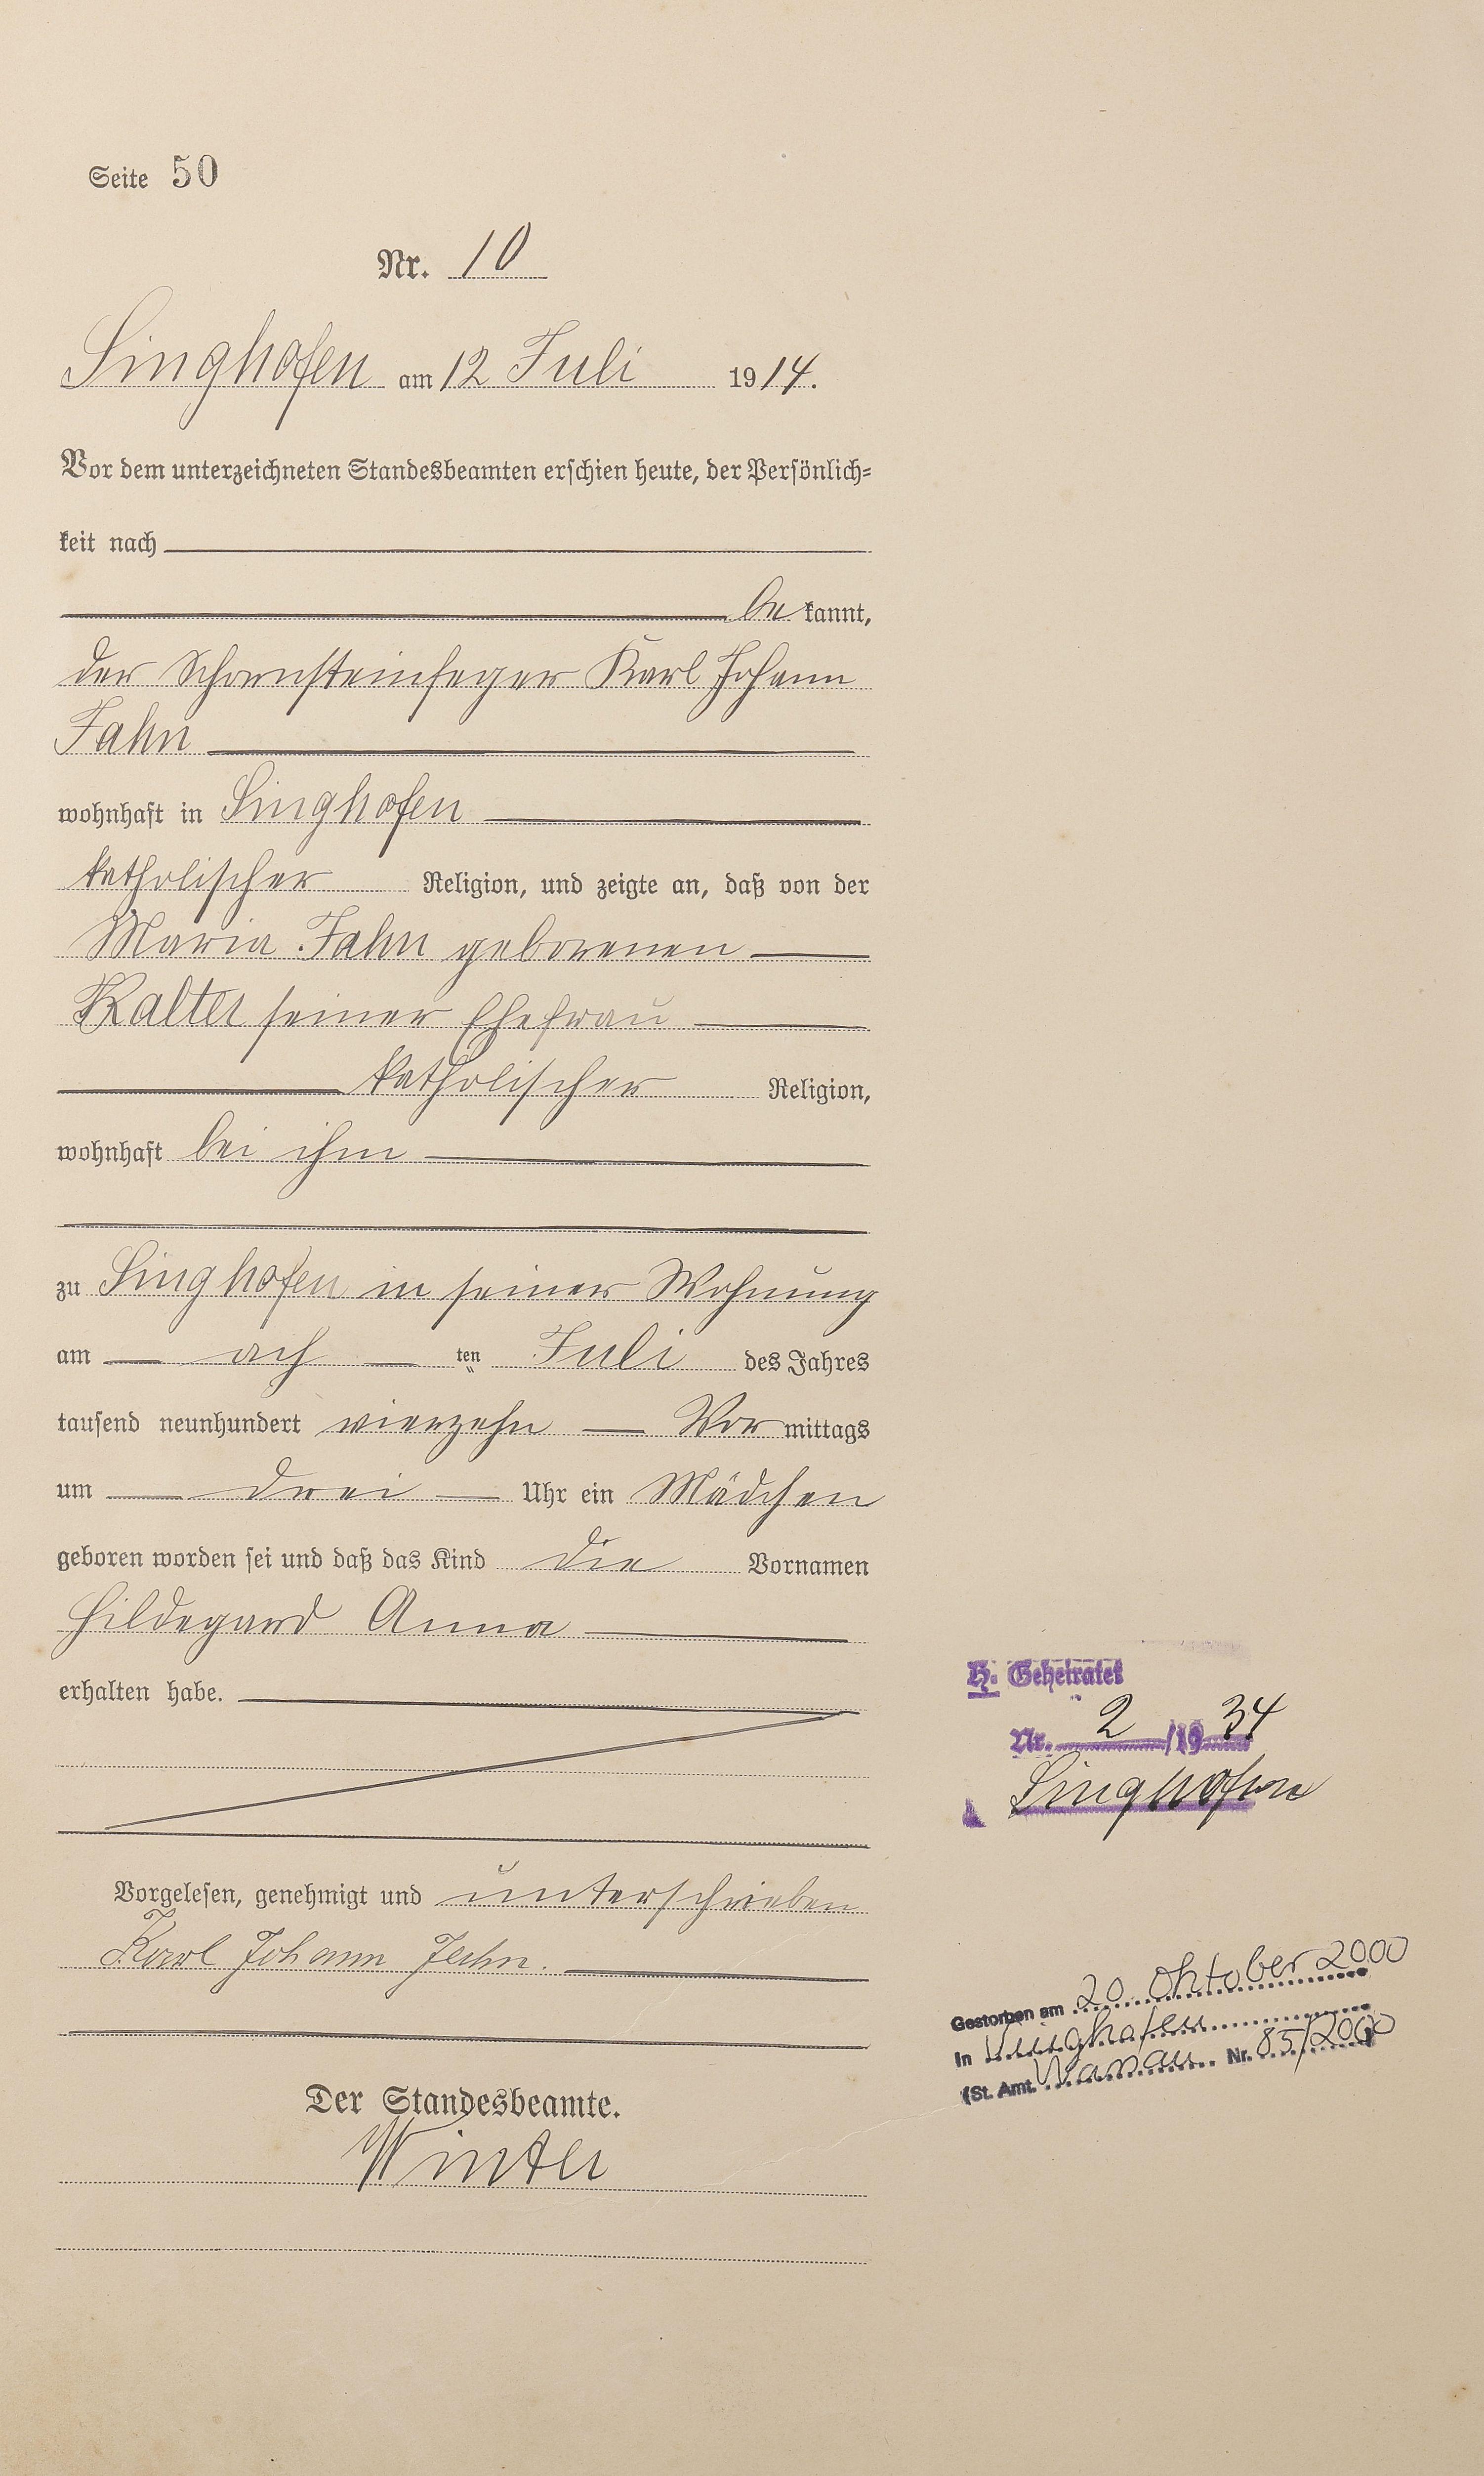 Seite 50
Nr. 10
Singhofen am 12 Juli 1914.
Vor dem unterzeichneten Standesbeamten erschien heute, der Persönlich-
keit nach
be kannt,
der Schornsteinfeger Karl Johann
Jahn
wohnhaft in Singhofen
katholischer Religion, und zeigte an, daß von der
Maria Jahn geborenen
Kalter seiner Ehefrau
katholischer Religion,
wohnhaft bei ihm
zu Singhofen in seiner Wohnung
am ach ten Juli des Jahres
tausend neunhundert vierzehn Vor mittags
um drei Uhr ein Mädchen
geboren worden sei und daß das Kind die Vornamen
Hildegard Anna
erhalten habe.
Vorgelesen, genehmigt und unterschrieben
Karl Johann Jahn.
Der Standesbeamte.
Winter
H. Geheiratet
Nr. 2 /19 34
Singhofen
Gestorben am 20. Oktober 2000
in Singhofen
(St. Amt. Nassau Nr. 85/2000)